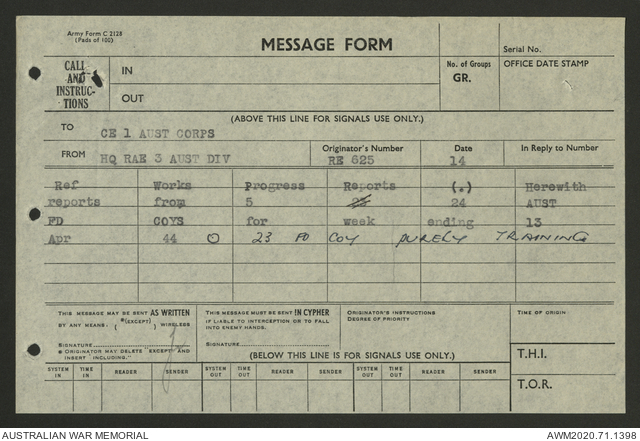 Army Form C 2128
(Pads of 100)
MESSAGE FORM
Serial No.
CALL AND INSTRUC-TIONS
IN
OUT
No. of Groups
GR.
OFFICE DATE STAMP
(ABOVE THIS LINE FOR SIGNALS USE ONLY.)
TO CE 1 AUST CORPS
FROM HQ RAE 3 AUST DIV
Originator's Number
RE 625
Date
14
In Reply to Number
Ref Works Progress Reports (.) Herewith
reports from 5 24 AUST
FD COYS for week ending 13
Apr 44 ⊙ 23 FD COY PURELY TRAINING
THIS MESSAGE MAY BE SENT AS WRITTEN
BY ANY MEANS. (*(EXCEPT) ) WIRELESS
SIGNATURE
* ORIGINATOR MAY DELETE "EXCEPT" AND INSERT "INCLUDING."
THIS MESSAGE MUST BE SENT IN CYPHER
IF LIABLE TO INTERCEPTION OR TO FALL INTO ENEMY HANDS.
SIGNATURE
ORIGINATOR'S INSTRUCTIONS
DEGREE OF PRIORITY
TIME OF ORIGIN
(BELOW THIS LINE IS FOR SIGNALS USE ONLY.)
T.H.I.
T.O.R.
SYSTEM IN TIME IN READER SENDER SYSTEM OUT TIME OUT READER SENDER SYSTEM OUT TIME OUT READER SENDER
AUSTRALIAN WAR MEMORIAL
AWM2020.71.1398